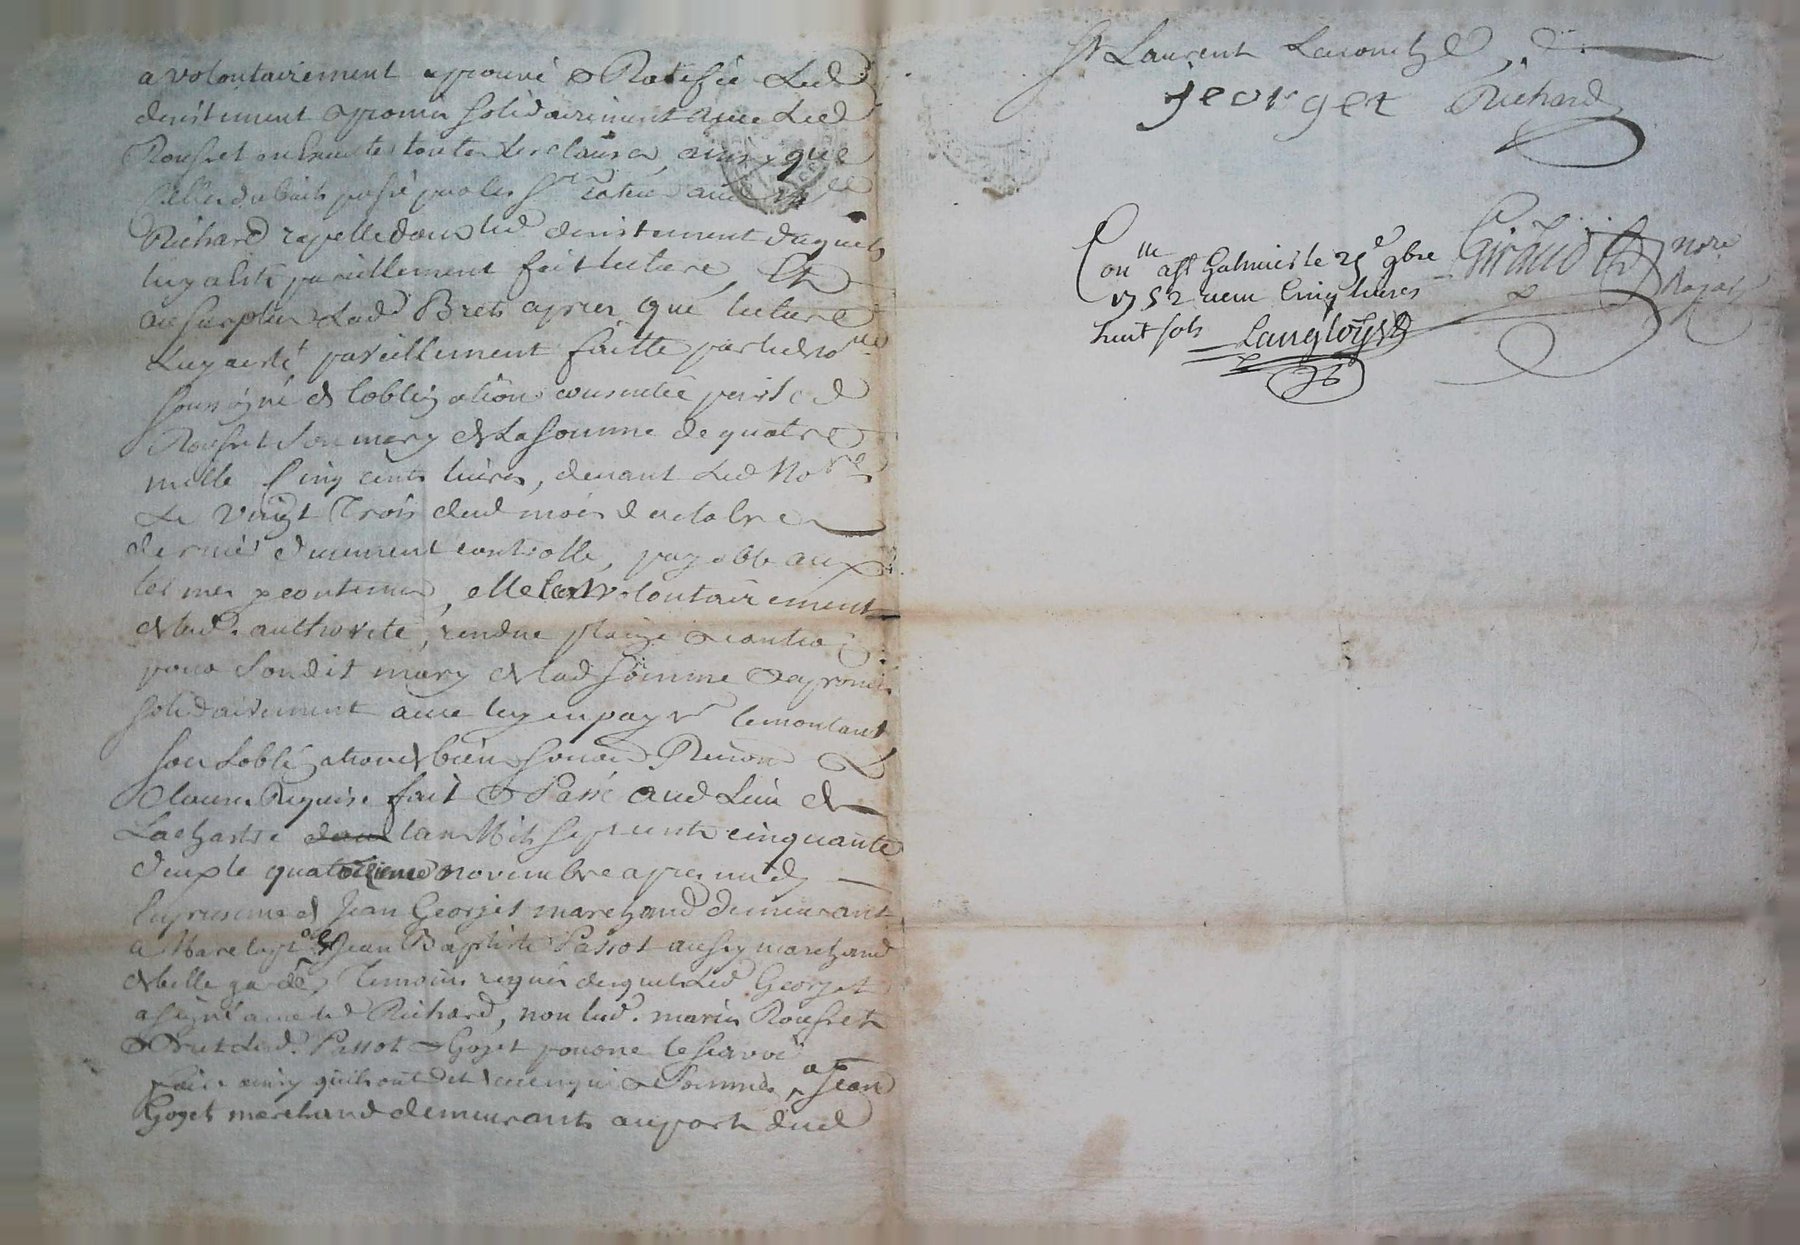 a volontairement aprouvé & Ratifié Led
desistement & promis solidairement avec Led
Rousset toutes les clauses, ainsy que
celles du bail passé par les Sr
Richard rapellé dans led desistement duquel
luy a esté pareillement fait lecture, Et
au surplus Lad Bret apres que lecture
Luy a esté pareillement faitte par led Nore
soussigné de l'obligation consentie par led
Rousset son mary de La somme de quatre
mille Cinq cents livres, devant Led Nore
Le vingt Trois dud mois d'octobre
dernier duement controllé, payable aux
termes y contenus, elle c'est volontairement
de lad. authorité, rendue plaige & caution
pour son dit mary de lad somme & a promis
solidairement avec luy en payer le montant
sous l'obligation de biens Renon &
clauses Requise fait & Passé aud Lieu de
Lachastre lan Mil sept cents cinquante
deux le quatorzieme novembre apres midy
En presence de Jean Georget marchand demeurant
a Jean Baptiste Passot aussy marchand
de belle garde, Temoins requis desquels Led Georget
a signé avec led Richard, non lad. mariés Rousset
& Bret Led. Passot & Goget pour ne le sçavoir
faire ainsy qu'ils ont dit enquis & Sommés, a Jean
Goget marchand demeurants au port dud
St Laurent Laconche
georget Richard
Conlle a St Galmier le 25e 9bre
1752 recu Cinq livres
huit sols Langlois
Giraud nore
Royal